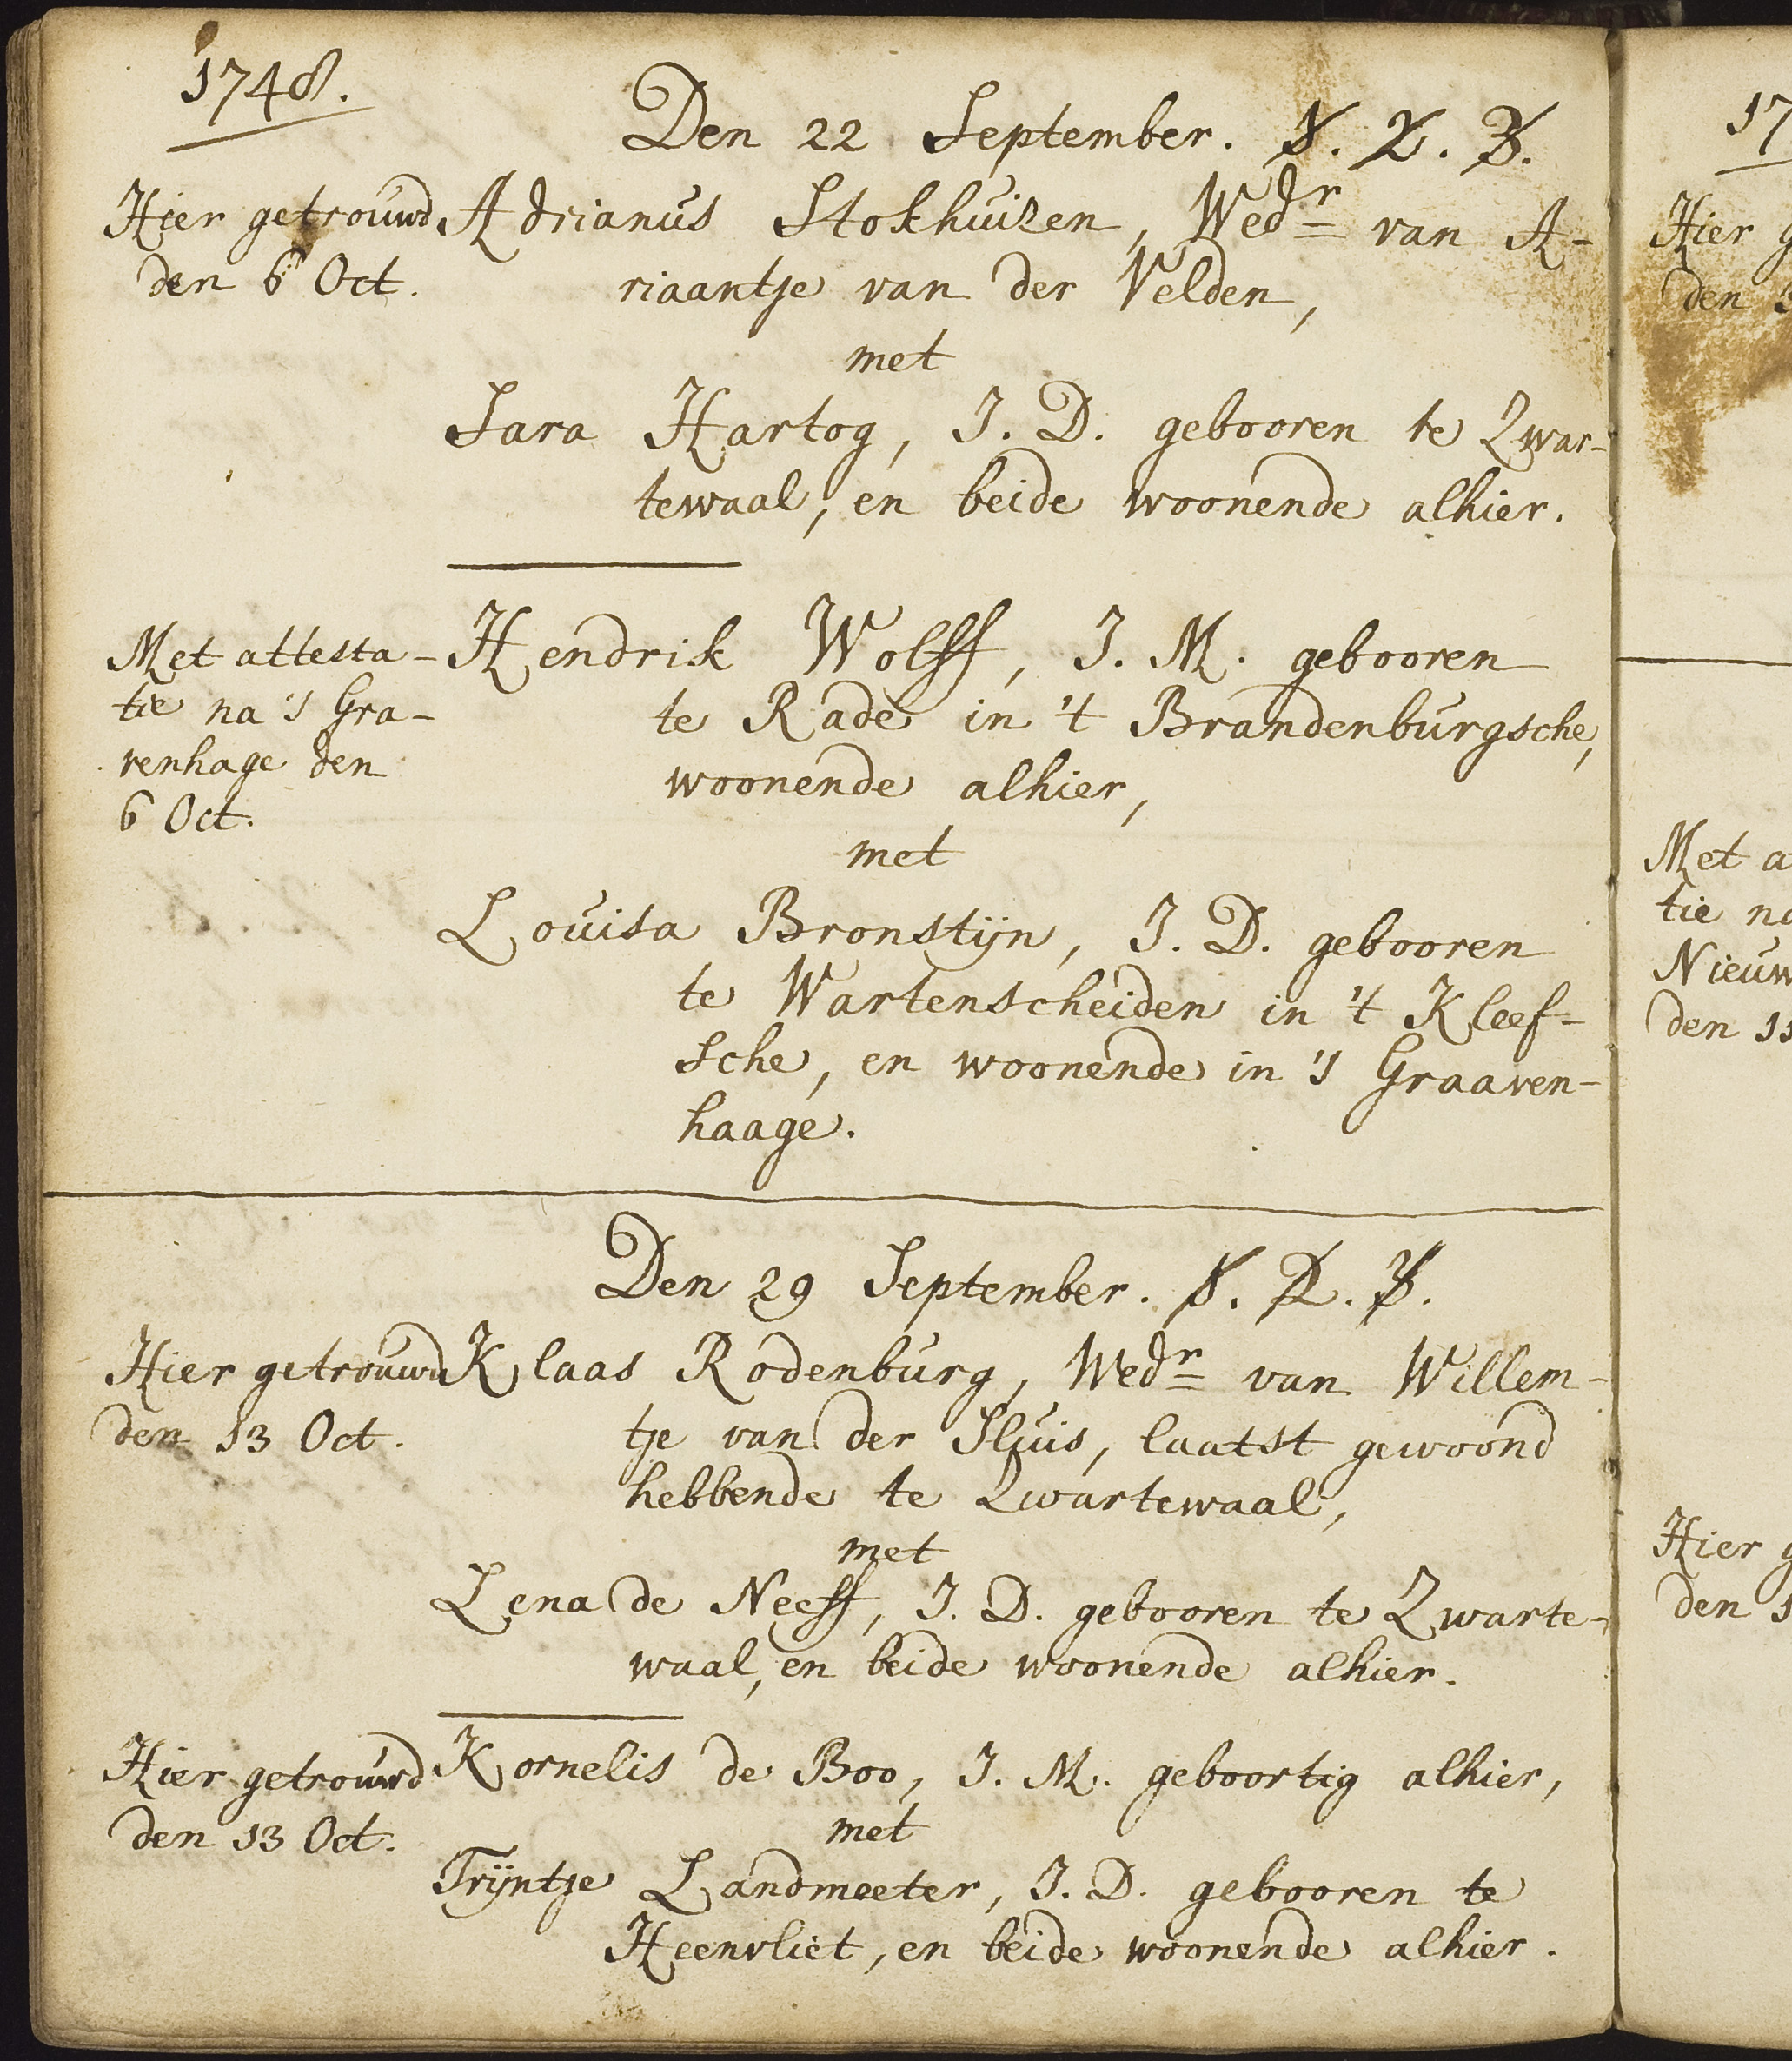 1748.
Den 22 September. 1. 2. 3.
Hier getrouwd
den 6 Oct.
Adrianus Stokhuizen, Wedr van A-
riaantje van der Velden,
met
Sara Hartog, J. D. gebooren te Zwar-
tewaal, en beide woonende alhier.
Met attesta-
tie na 's Gra-
venhage den
6 Oct.
Hendrik Wolff, J. M. gebooren
te Rade in 't Brandenburgsche,
woonende alhier,
met
Louisa Bronstijn, J. D. gebooren
te Wartenscheiden in 't Kleef-
sche, en woonende in 's Graaven-
haage.
Den 29 September. 1. 2. 3.
Hier getrouwd
den 13 Oct.
Klaas Rodenburg, Wedr van Willem-
tje van der Sluis, laatst gewoond
hebbende te Zwartewaal,
met
Lena de Neeff, J. D. gebooren te Zwarte-
waal, en beide woonende alhier.
Hier getrouwd
den 13 Oct.
Kornelis de Boo, J. M. geboortig alhier,
met
Trijntje Landmeeter, J. D. gebooren te
Heenvliet, en beide woonende alhier.
17
Hier g
den
Met a
tie na
Nieuw
den 11
Hier g
den 1